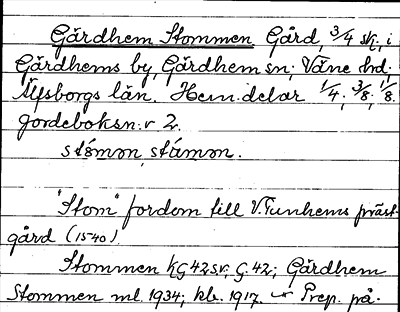 Gärdhem Stommen Gård, 3/4 skj, i
Gärdhems by, Gärdhem sn; Väne hd;
Älfsborgs län. Hem. delar 1/4; 3/8; 1/8.
Jordeboksn:r 2.
stómən, stámən.
"Stom" fordom till V. Tunhems präst-
gård (1540).
Stommen KG42sv. G. 42; Gärdhem
Stommen ml. 1934; kb. 1917. Prep. på.